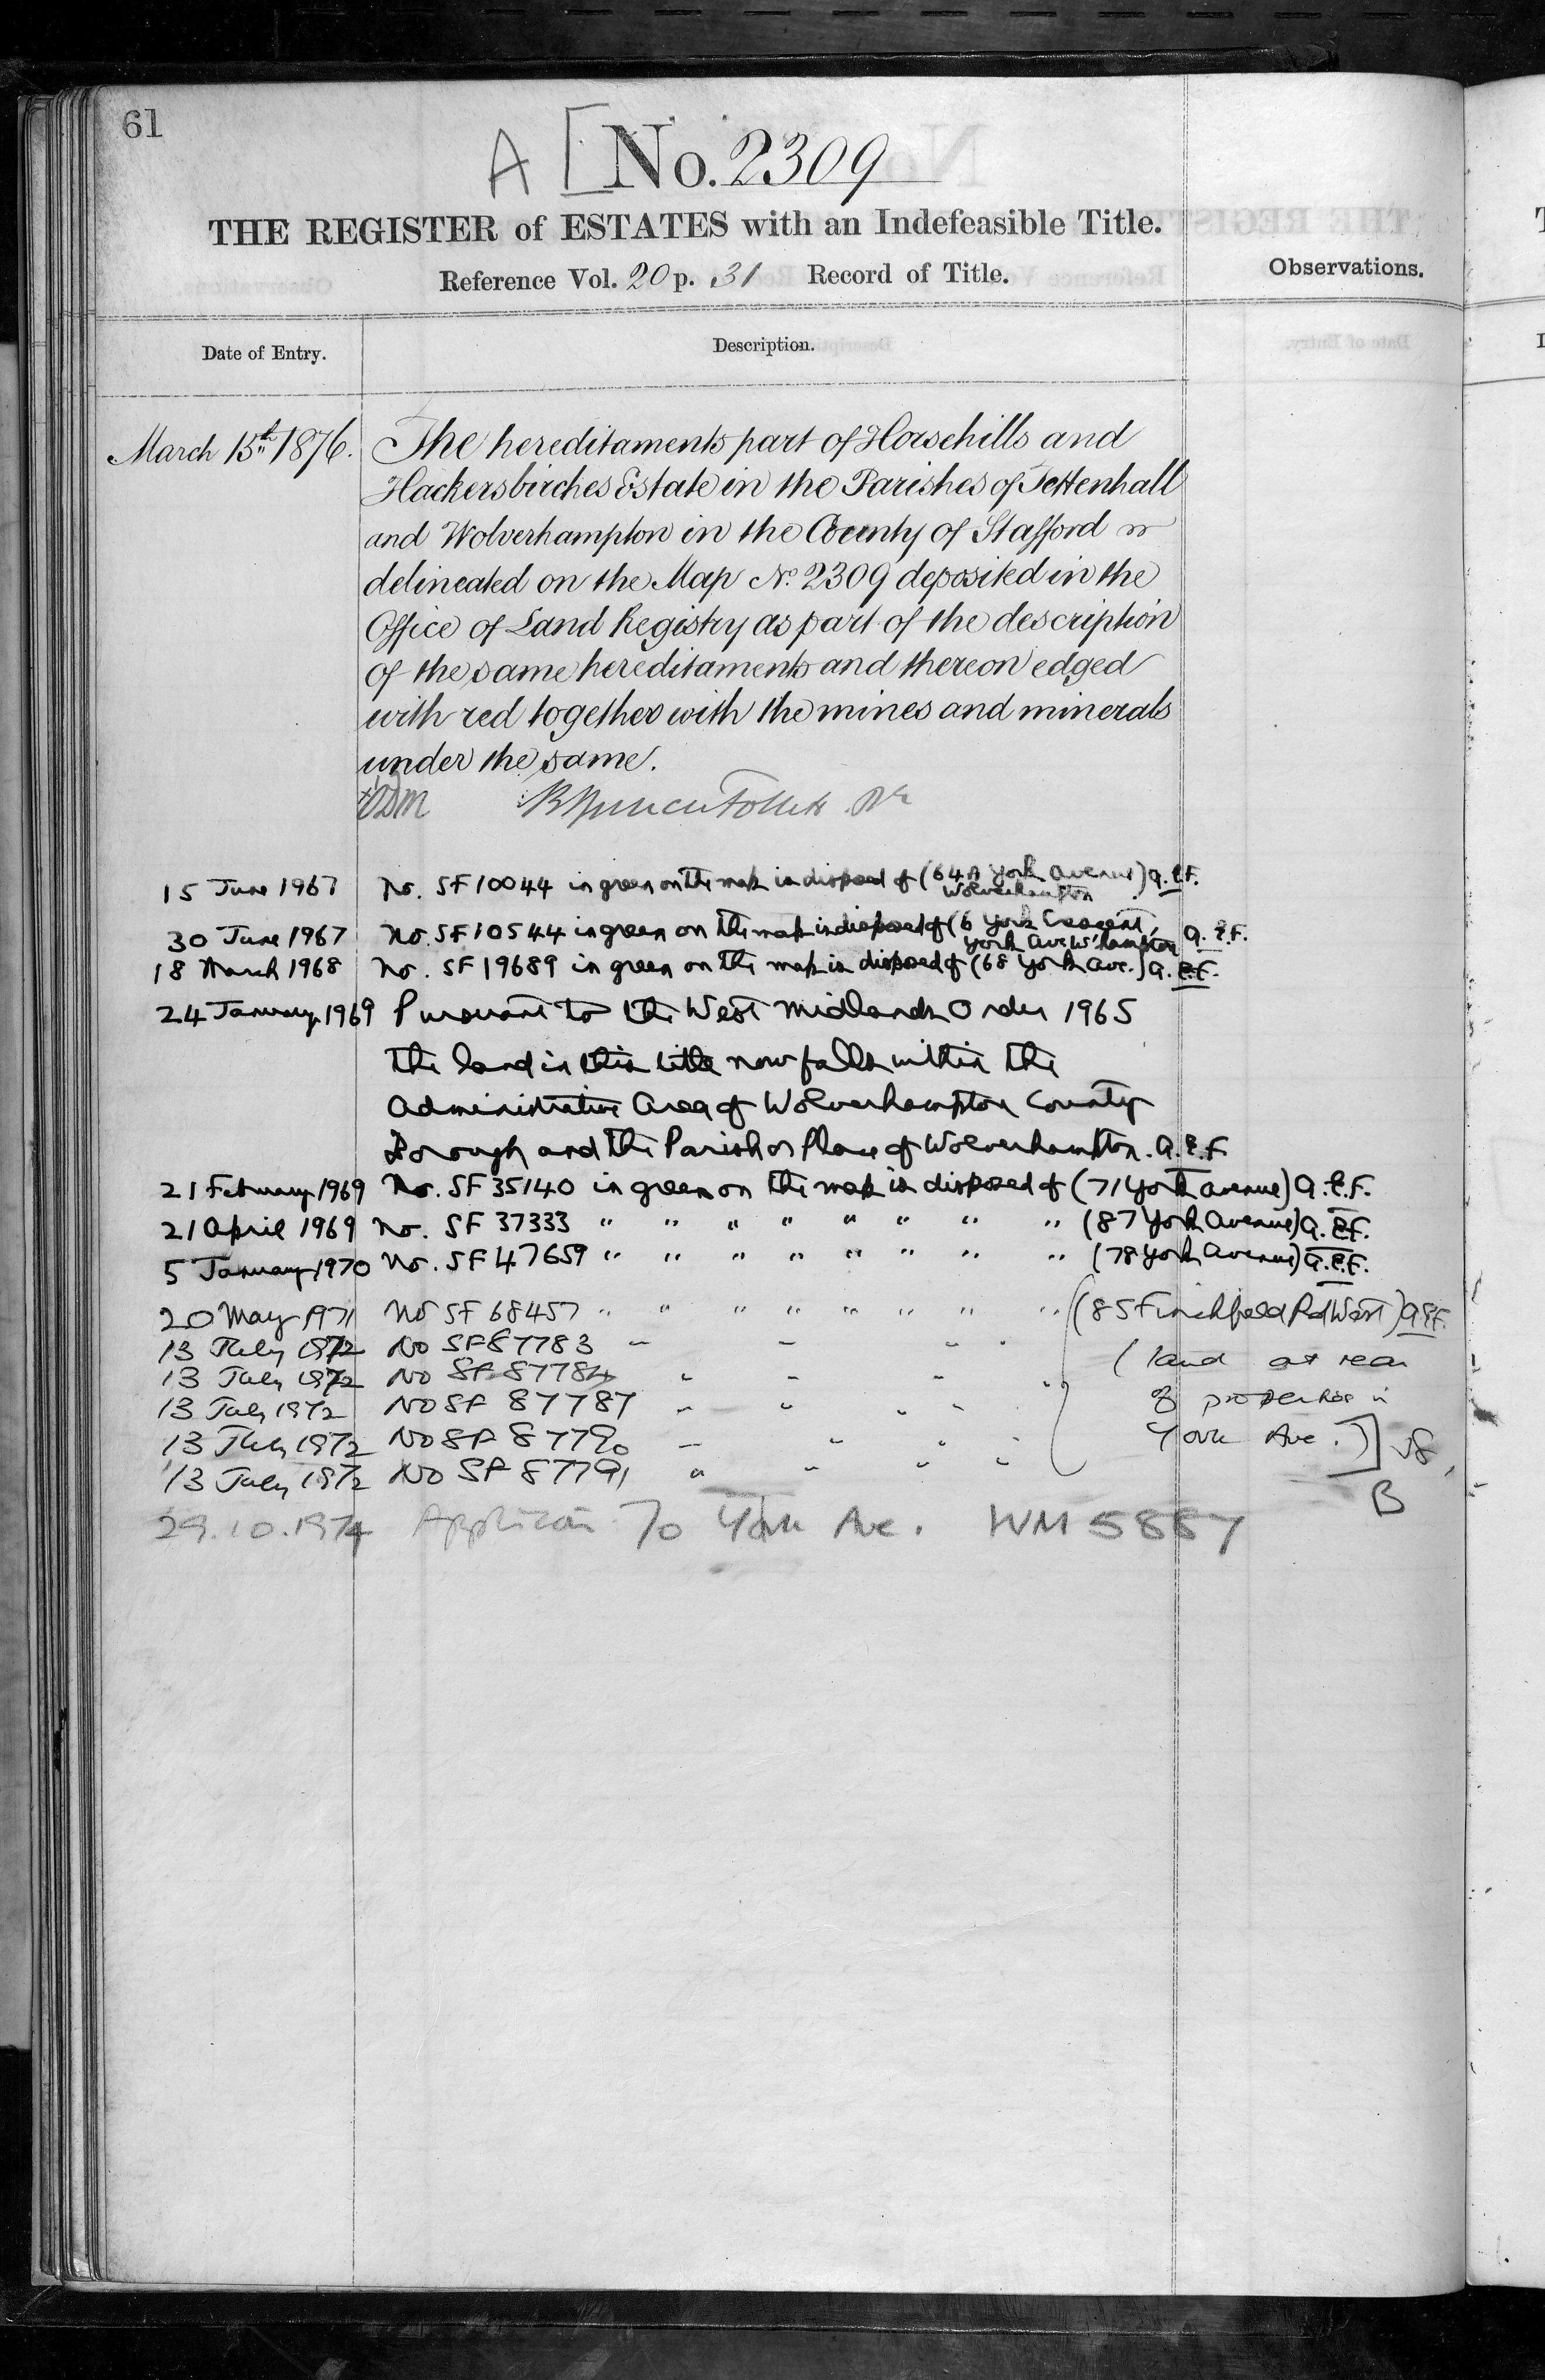 61
A [ No. 2309
THE REGISTER of ESTATES with an Indefeasible Title.
Reference Vol. 20 p. 31 Record of Title.
Observations.
Date of Entry.
Description.
March 15th 1876. The hereditaments part of Horsehills and
Hackersbirches Estate in the Parishes of Tettenhall
and Wolverhampton in the County of Stafford
delineated on the Map No. 2309 deposited in the
Office of Land Registry as part of the description
of the same hereditaments and thereon edged
with red together with the mines and minerals
under the same.
15 June 1967 No. SF10044 in green on the map is disposed of (64A York Avenue) a.e.F.
Wolverhampton
30 June 1967 No. SF10544 in green on the map is disposed of (6 York Crescent,
York Ave W'hampton a.e.F.
18 March 1968 No. SF19689 in green on the map is disposed of (68 York Ave.) a.e.F.
24 January 1969 Pursuant to the West Midlands Order 1965
the land in this title now falls within the
Administrative Area of Wolverhampton County
Borough and the Parish or Place of Wolverhampton. a.e.F
21 February 1969 No. SF35140 in green on the map is disposed of (71 York Avenue) a.e.F.
21 April 1969 No. SF 37333 " " " " " " " " (87 York Avenue) a.e.F.
5 January 1970 No. SF47659 " " " " " " " " (78 York Avenue) a.e.F.
20 May 1971 No SF 68457 " " " " " " " " (85 Finchfield Rd West) a.e.F.
13 July 1972 No SF87783 " " " "
13 July 1972 No SF 87784 " " " " (land at rear
13 July 1972 No SF 87787 " " " " of properties in
13 July 1972 No SF 87790 " " " " York Ave.) ]
13 July 1972 No SF 87791 " " " "
B
29.10.1974 70 York Ave. WM 5887